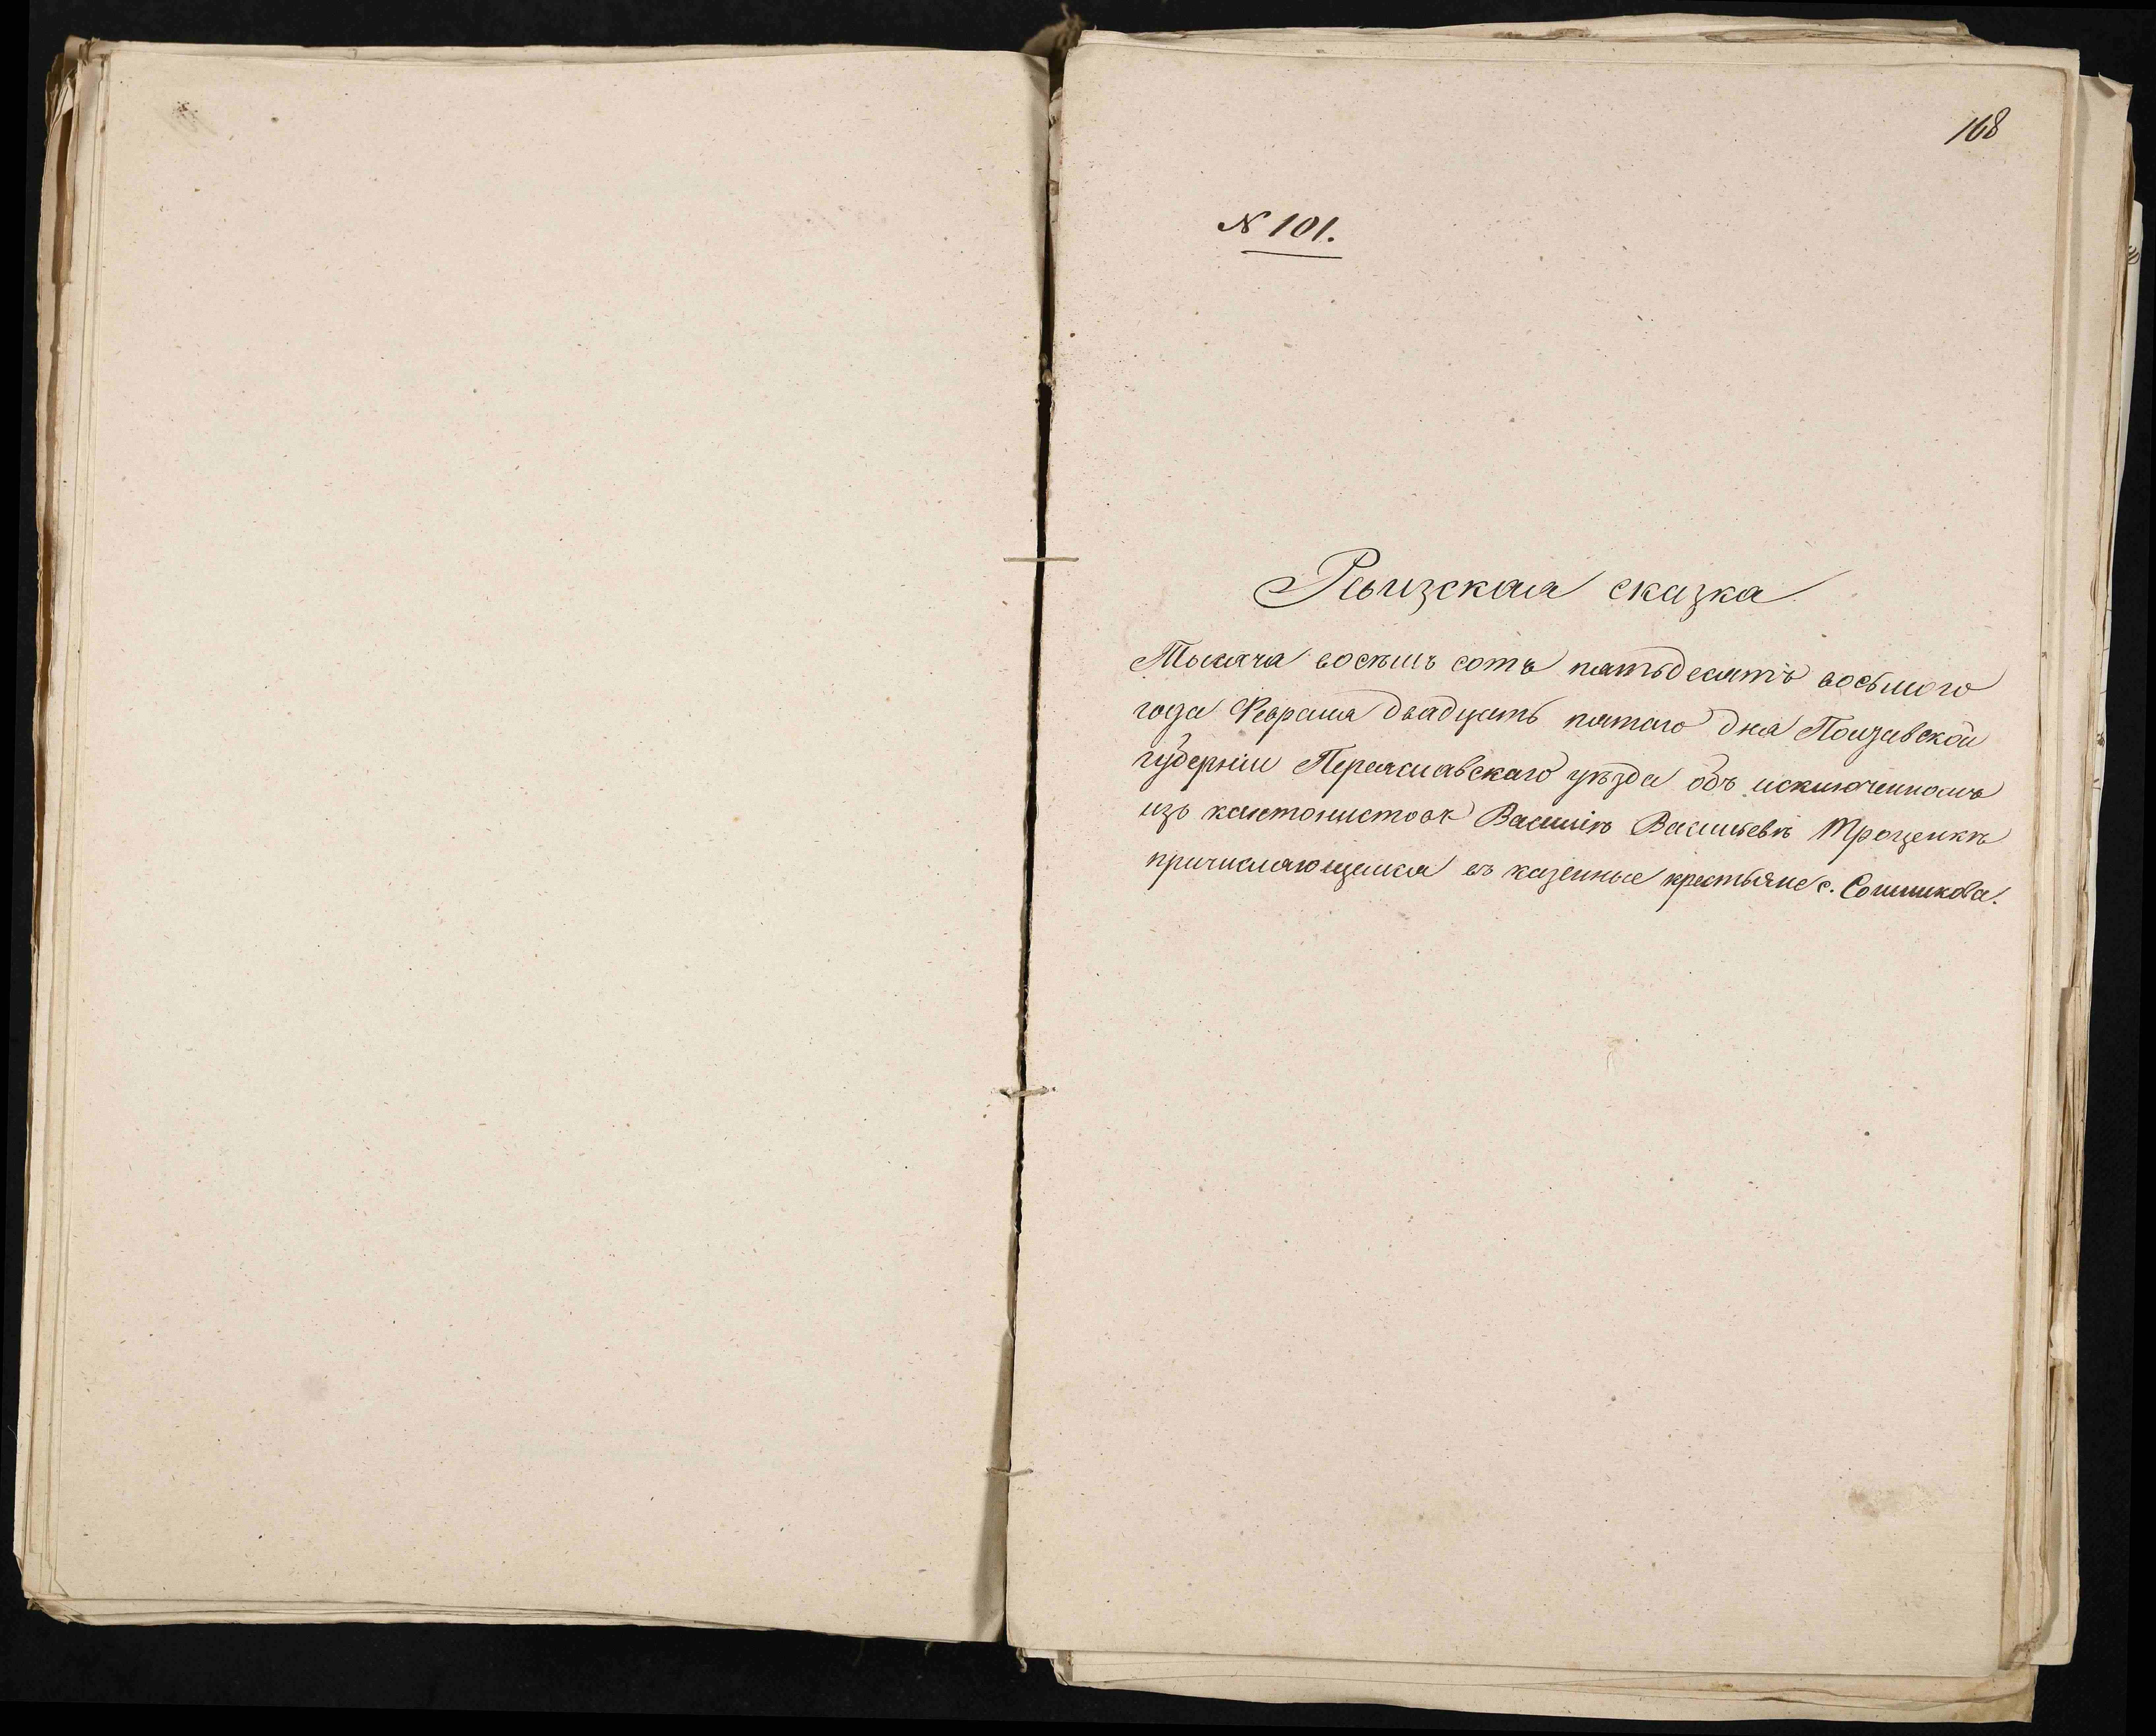 168
N 101.
Ревизская сказка
Тысяча восемь сотъ пятьдесятъ восьмого
года Февраля двадцать пятого дня Полтавской
губерніи Переяславскаго уѣзда объ исключенномъ
изъ кантонистовъ Василіѣ Васильевѣ Троценкѣ
причисляющемся въ казенные крестьяне с. Сошникова.